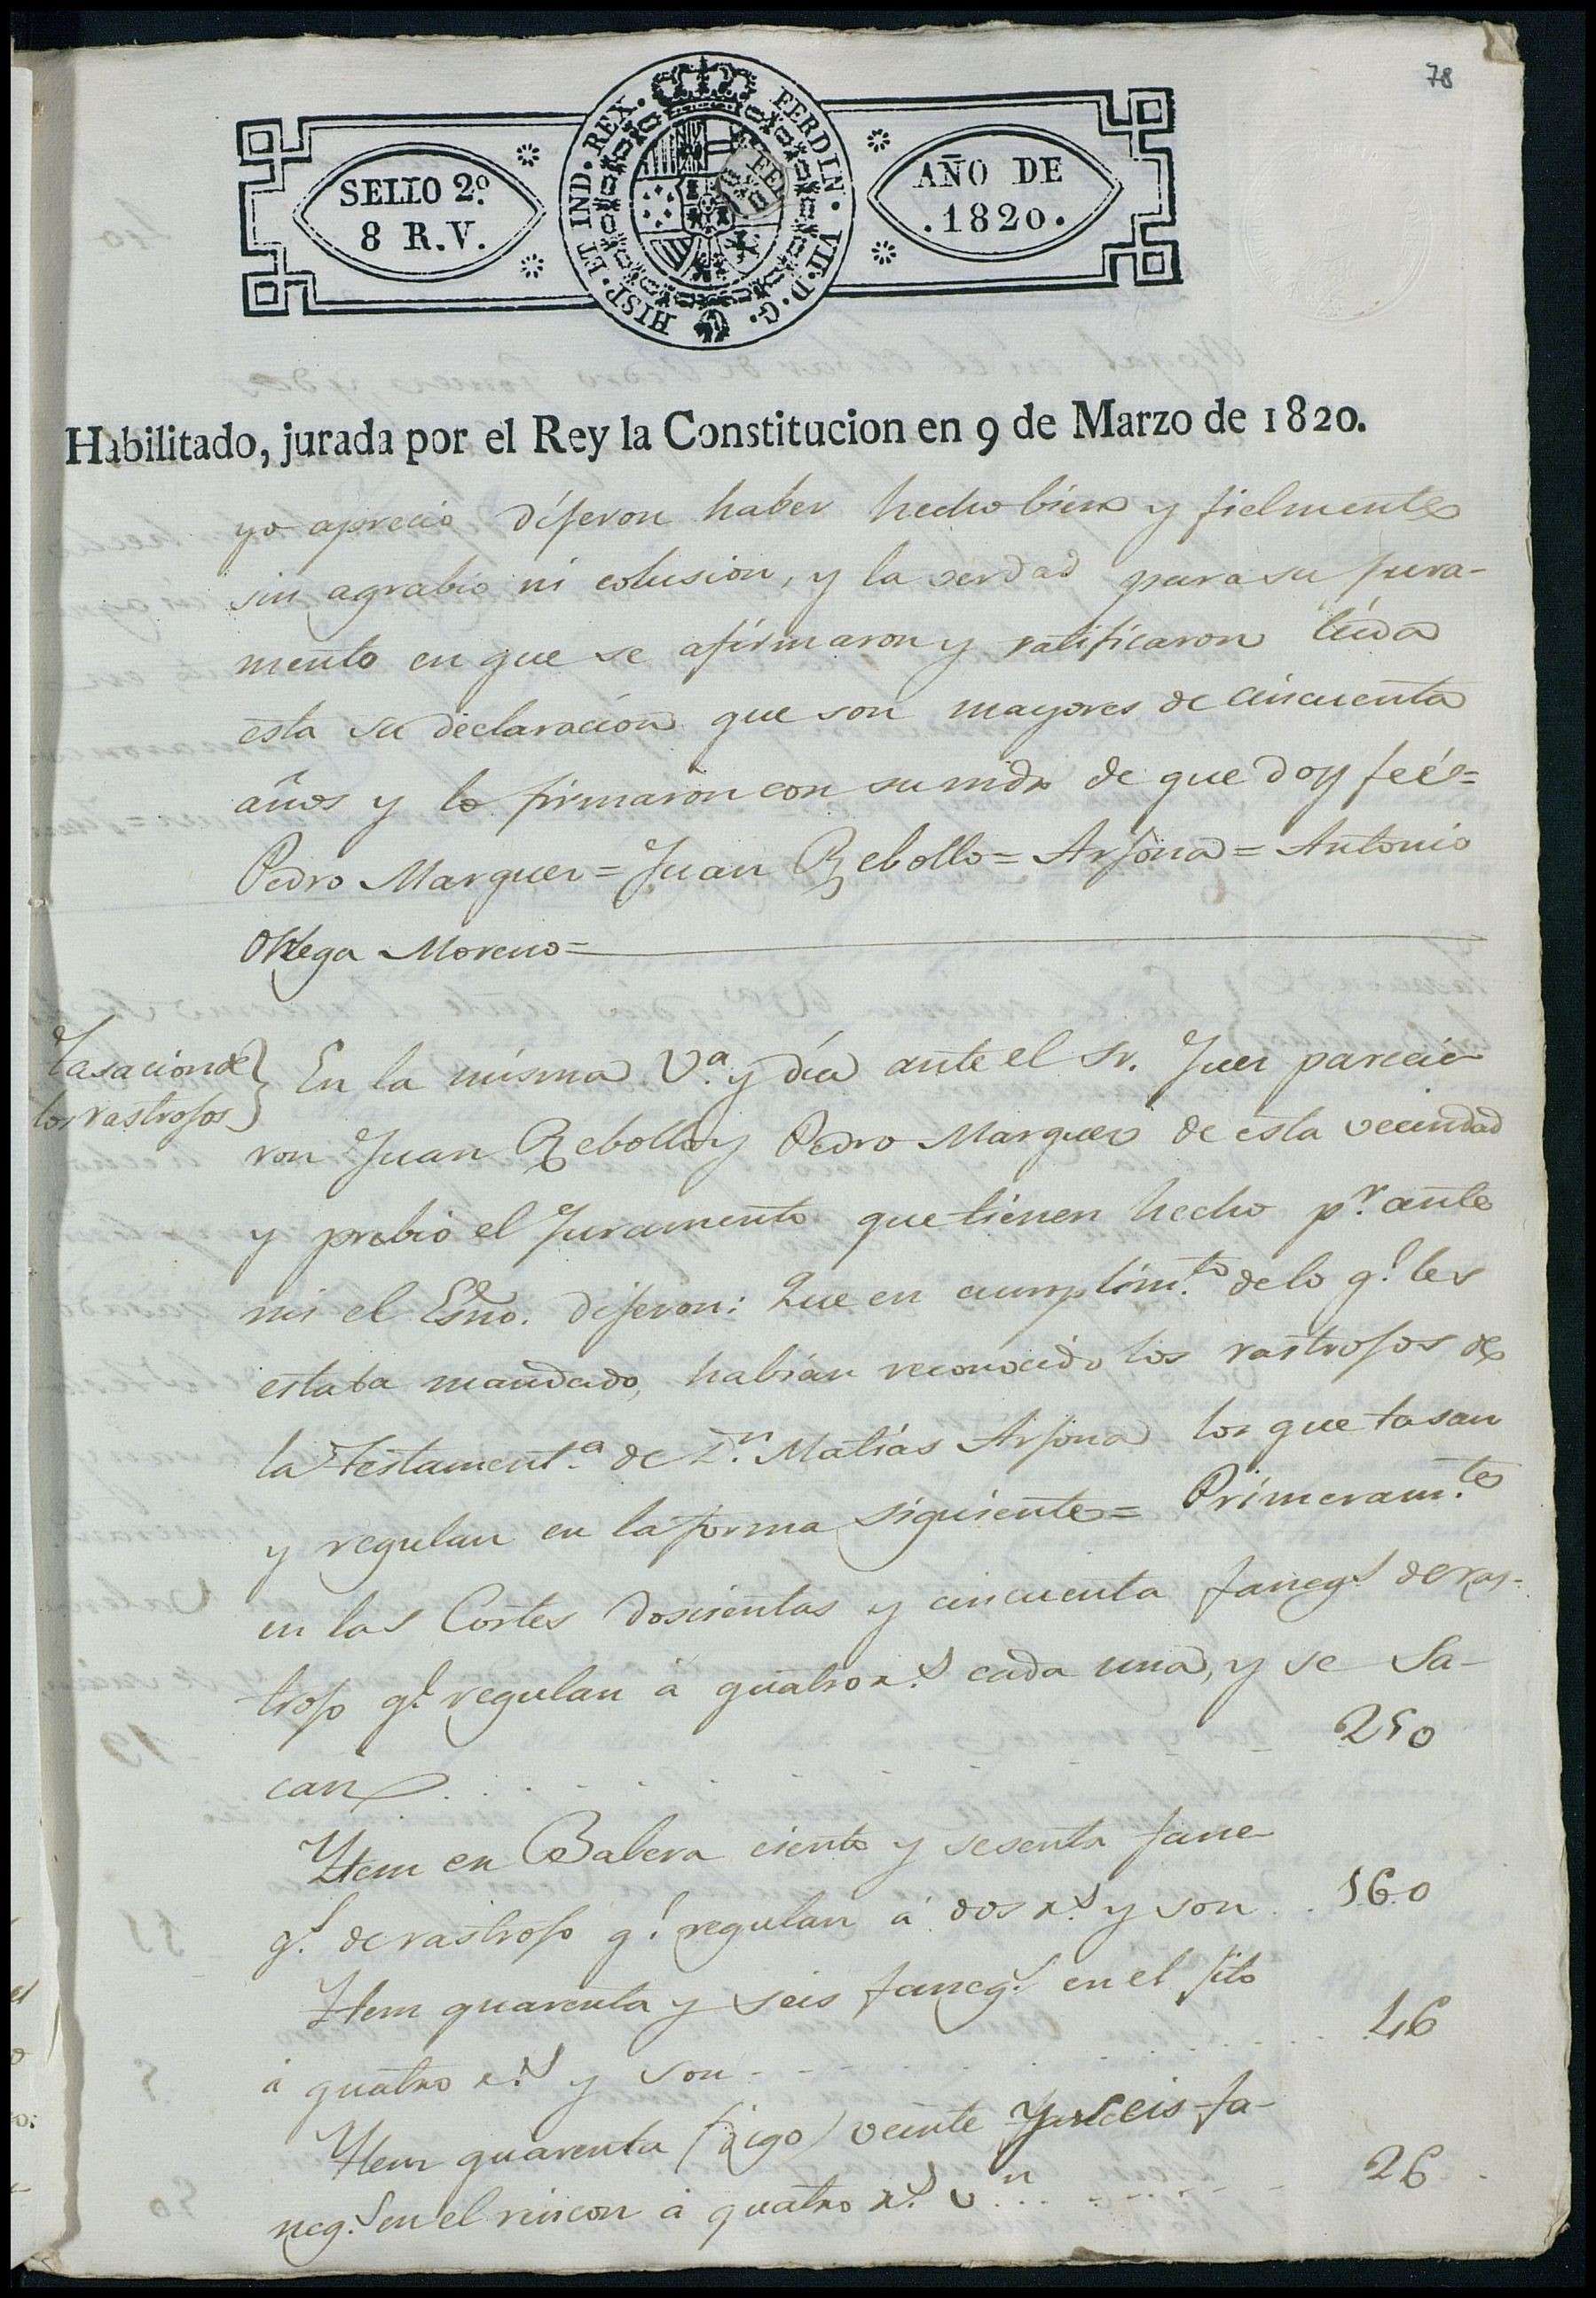 78
SELLO 2º.
8 R.V.
HISP. ET IND. REX. FERDIN. VII. D. G.
AÑO DE
.1820.
Habilitado, jurada por el Rey la Constitucion en 9 de Marzo de 1820.
yo aprecio dijeron haber hecho bien y fielmente
sin agrabio ni colusion, y la verdad para su jura-
mento en que se afirmaron y ratificaron leida
esta su declaracion que son mayores de cincuenta
años y lo firmaron con su mrd de que doy feé=
Pedro Marquez= Juan Rebollo= Arjona= Antonio
Ortega Moreno=
Tasacion de
los rastrojos
En la misma V.ª y dia ante el Sr. Juez parecie
ron Juan Rebollo y Pedro Marquez de esta vecindad
y prebio el Juramento que tienen hecho pr. ante
mi el Esno. dijeron: Que en cumplim.to de lo q.e les
estaba mandado, habian reconocido los rastrojos de
la Testament.ª de Dn. Matias Arjona los que tasan
y regulan en la forma siguiente= Primeram.te
en las Cortes doscientas y cincuenta faneg.s de ras-
trojo q.e regulan á quatro r.s cada una, y se sa-
can . . . . . . . . 250
Ytem en Balera ciento y sesenta fane
g.s de rastrojo q.e regulan á dos r.s y son . . 160
Ytem quarenta y seis faneg.s en el sito
á quatro r.s y son . . . . . . 46
Ytem quarenta (digo) veinte y seis fa-
neg.s en el rincon á quatro r.s v.n . . . . . . 26